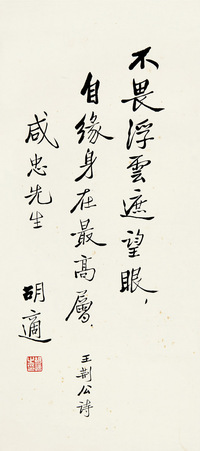 不畏浮雲遮望眼，
自緣身在最高層．
王荆公诗
咸忠先生
胡適